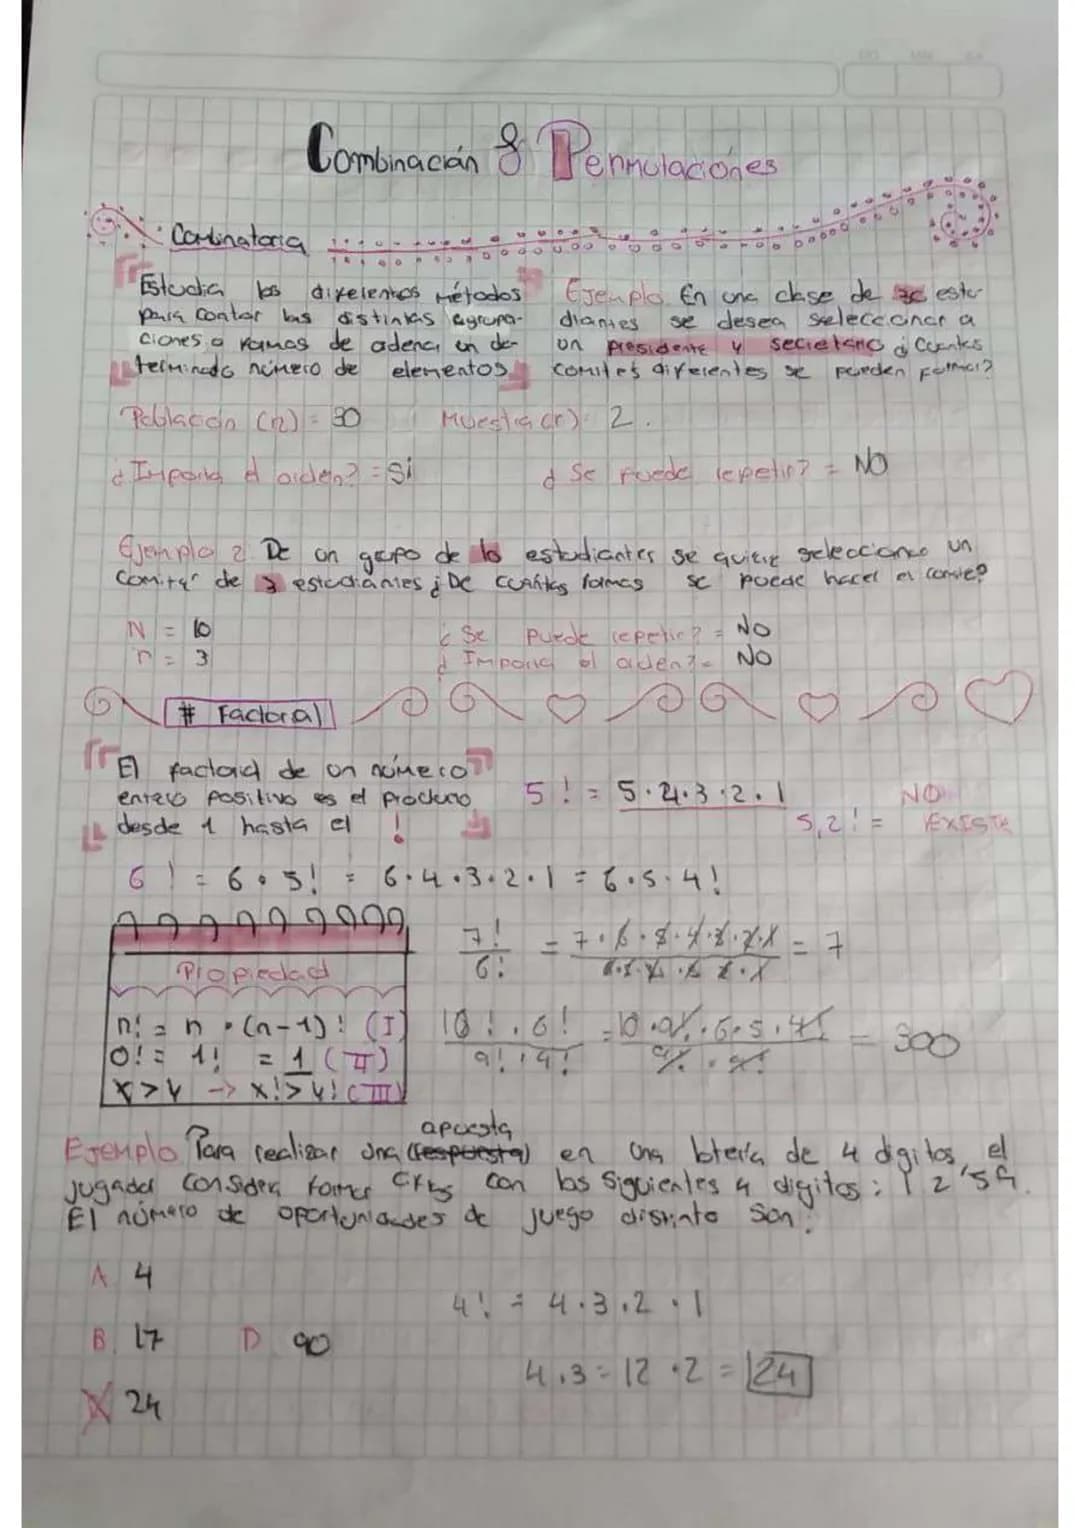 Combinación & Permutaciones
Combinatoria
Estudia los diferentes métodos
para contar las distintas agrupa-
ciones o formas de ordenar un de-
terminado número de elementos
Ejemplo En una clase de 30 estu-
diantes se desea seleccionar a
un presidente y secretario ¿Cuantos
comites diferentes se pueden formar?
Población (n) = 30 Muestra (r) = 2.
¿Importa el orden? = Si ¿Se puede repetir? = NO
Ejemplo 2 De un grupo de 10 estudiantes se quiere seleccionar un
comite de 3 estudiantes ¿De cuántas formas se puede hacer el comite?
N = 10 ¿Se puede repetir? = NO
r = 3 ¿Importa el orden? = NO
# Factorial
El factorial de un número
entero positivo es el producto
desde 1 hasta el !
5! = 5.4.3.2.1
5,2! = NO EXISTE
6! = 6.5! = 6.4.3.2.1 = 6.5.4!
Propiedad
n! = n . (n-1)! (I)
0! = 1! = 1 (II)
x>y -> x!>y! (III)
7!/6! = 7.6.5.4.3.2.1/6.5.4.3.2.1 = 7
10!.6!/9!.4! = 10.9!.6.5.4!/9!.4! = 300
apuesta
Ejemplo Para realizar una (respuesta) en una lotería de 4 digitos, el
jugador considera formar con los siguientes 4 digitos: 1 2
El número de oportunidades de juego distinto son:
A 4
B. 17 D 90
X 24
4! = 4.3.2.1
4.3 = 12 .2 = 24